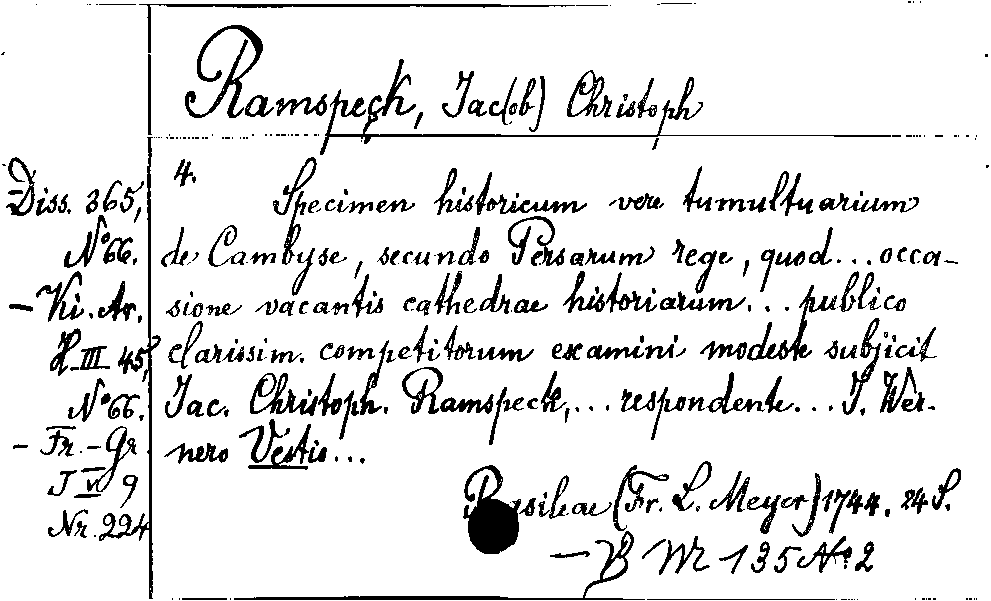 Ramspeck, Jac(ob) Christoph
4.
Diss. 365,
N° 66.
- Ki. Ar.
H III 45,
N° 66.
- Fr.-Gr.
J VI 9
Nr. 224
Specimen historicum vere tumultuarium
de Cambyse, secundo Persarum rege, quod... occa-
sione vacantis cathedrae historiarum... publico
clarissim. competitorum examini modeste subjicit
Jac. Christoph. Ramspeck,... respondente... J. Wer-
nero Vestio...
Basileae (Fr. L. Meyer) 1744. 24 S.
- B Wr 135 No 2